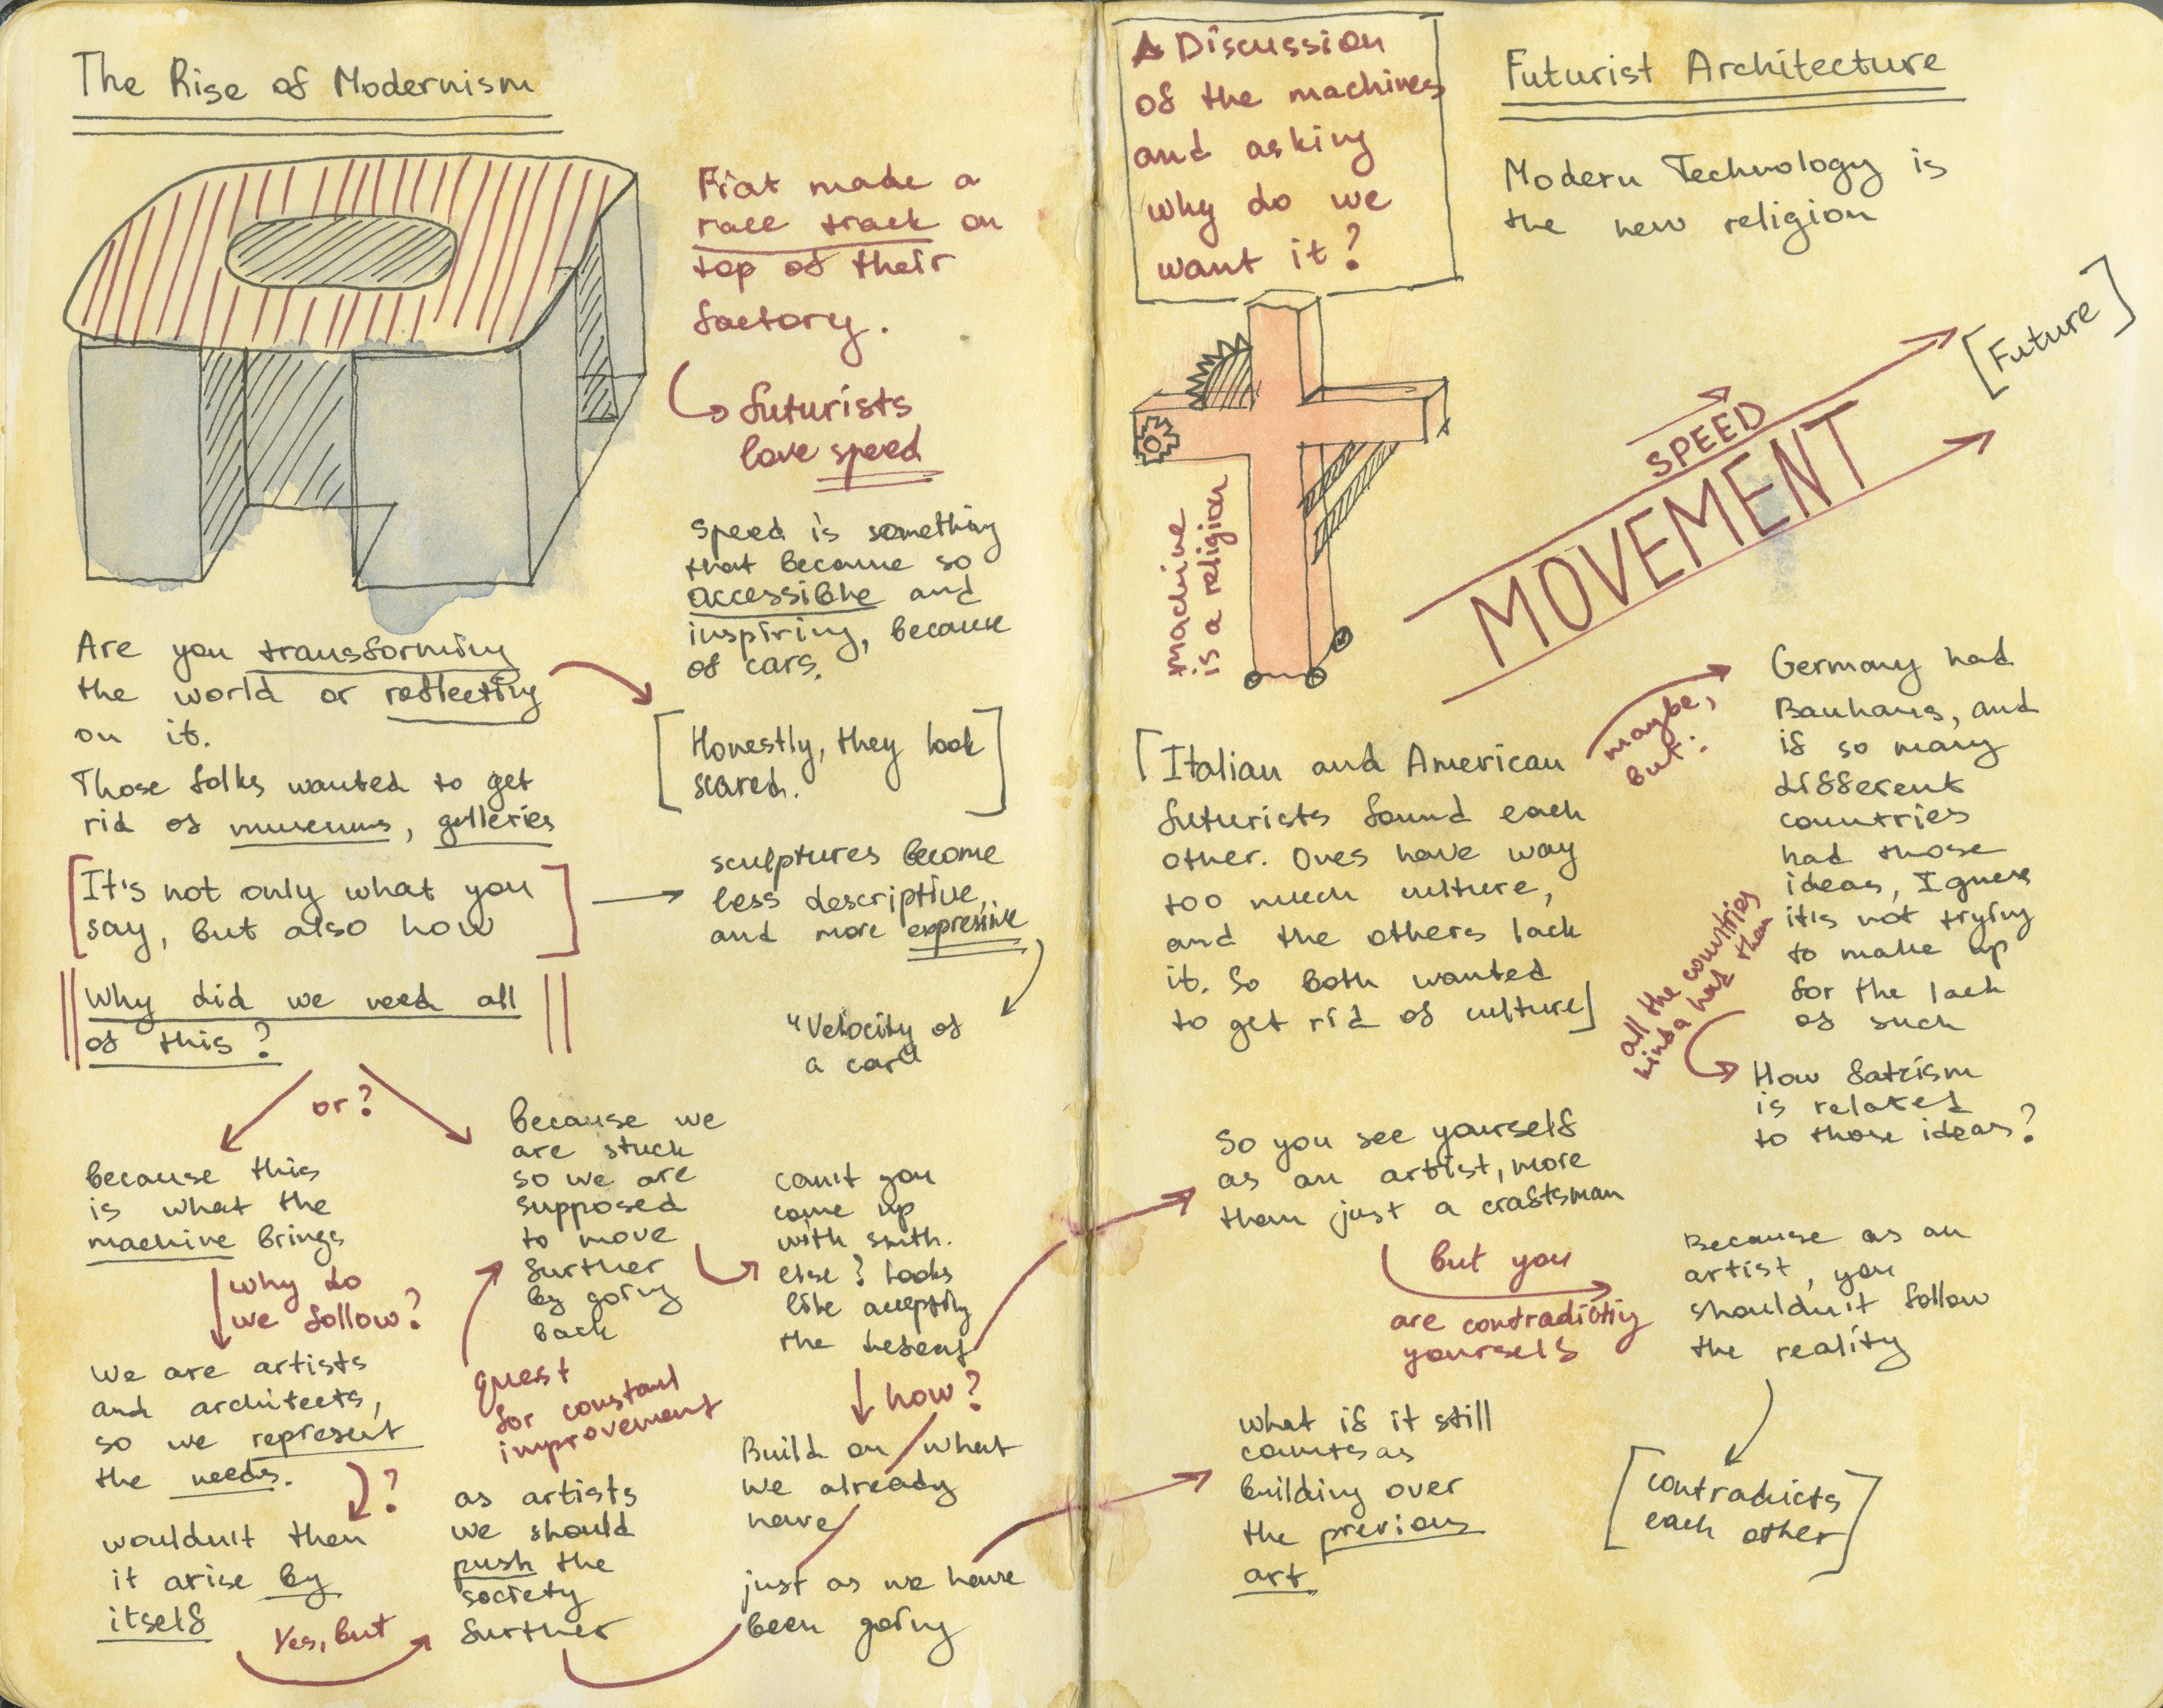 The Rise of Modernism
Fiat made a
race track on
top of their
factory.
futurists
love speed
speed is something
that became so
accessible and
inspiring, because
of cars.
Are you transforming
the world or reflecting
on it.
Those folks wanted to get
rid of museums, galleries
[Honestly, they look
scared.]
[It's not only what you
say, but also how]
sculptures become
less descriptive,
and more expressive
"Velocity of
a car"
Why did we need all
of this?
or?
because this
is what the
machine brings
why do
we follow?
We are artists
and architects,
so we represent
the needs.
?
wouldn't then
it arise by
itself
Yes, but
because we
are stuck
so we are
supposed
to move
further
by going
back
quest
for constant
improvement
as artists
we should
push the
society
further
can't you
come up
with smth.
else? looks
like accepting
the defeat
how?
Build on what
we already
have
just as we have
been going
A Discussion
of the machines
and asking
why do we
want it?
Futurist Architecture
Modern Technology is
the new religion
machine
is a religion
SPEED
MOVEMENT
[Future]
[Italian and American
futurists found each
other. Ones have way
too much culture,
and the others lack
it. So both wanted
to get rid of culture]
maybe,
but:
Germany had
Bauhaus, and
if so many
different
countries
had those
ideas, I guess
it's not trying
to make up
for the lack
of such
all the countries
kinda had them
How fatcism
is related
to those ideas?
So you see yourself
as an artist, more
than just a craftsman
but you
are contradictiy
yourself
Because as an
artist, you
shouldn't follow
the reality
[contradicts
each other]
what if it still
counts as
building over
the previous
art